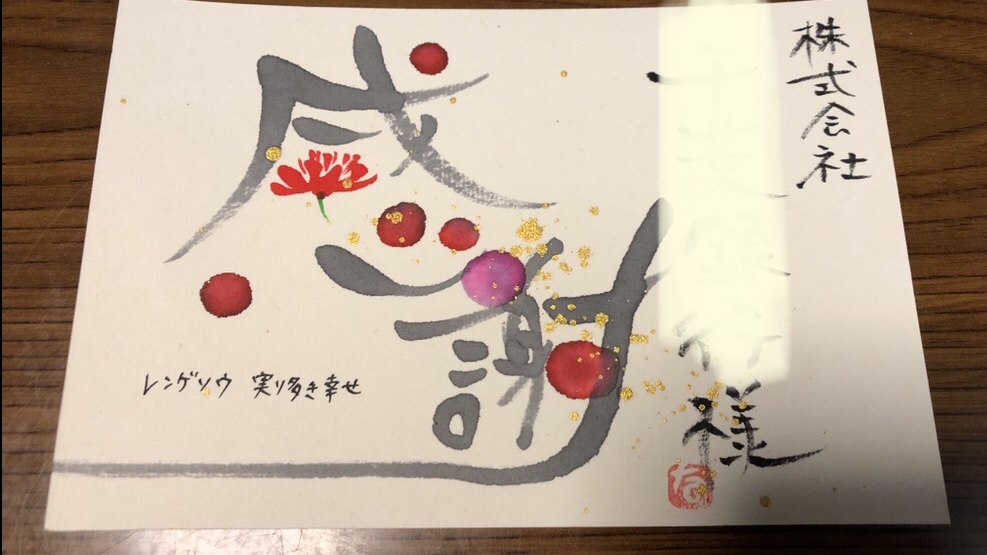 株式会社
様
感謝
レンゲソウ 実り多き幸せ